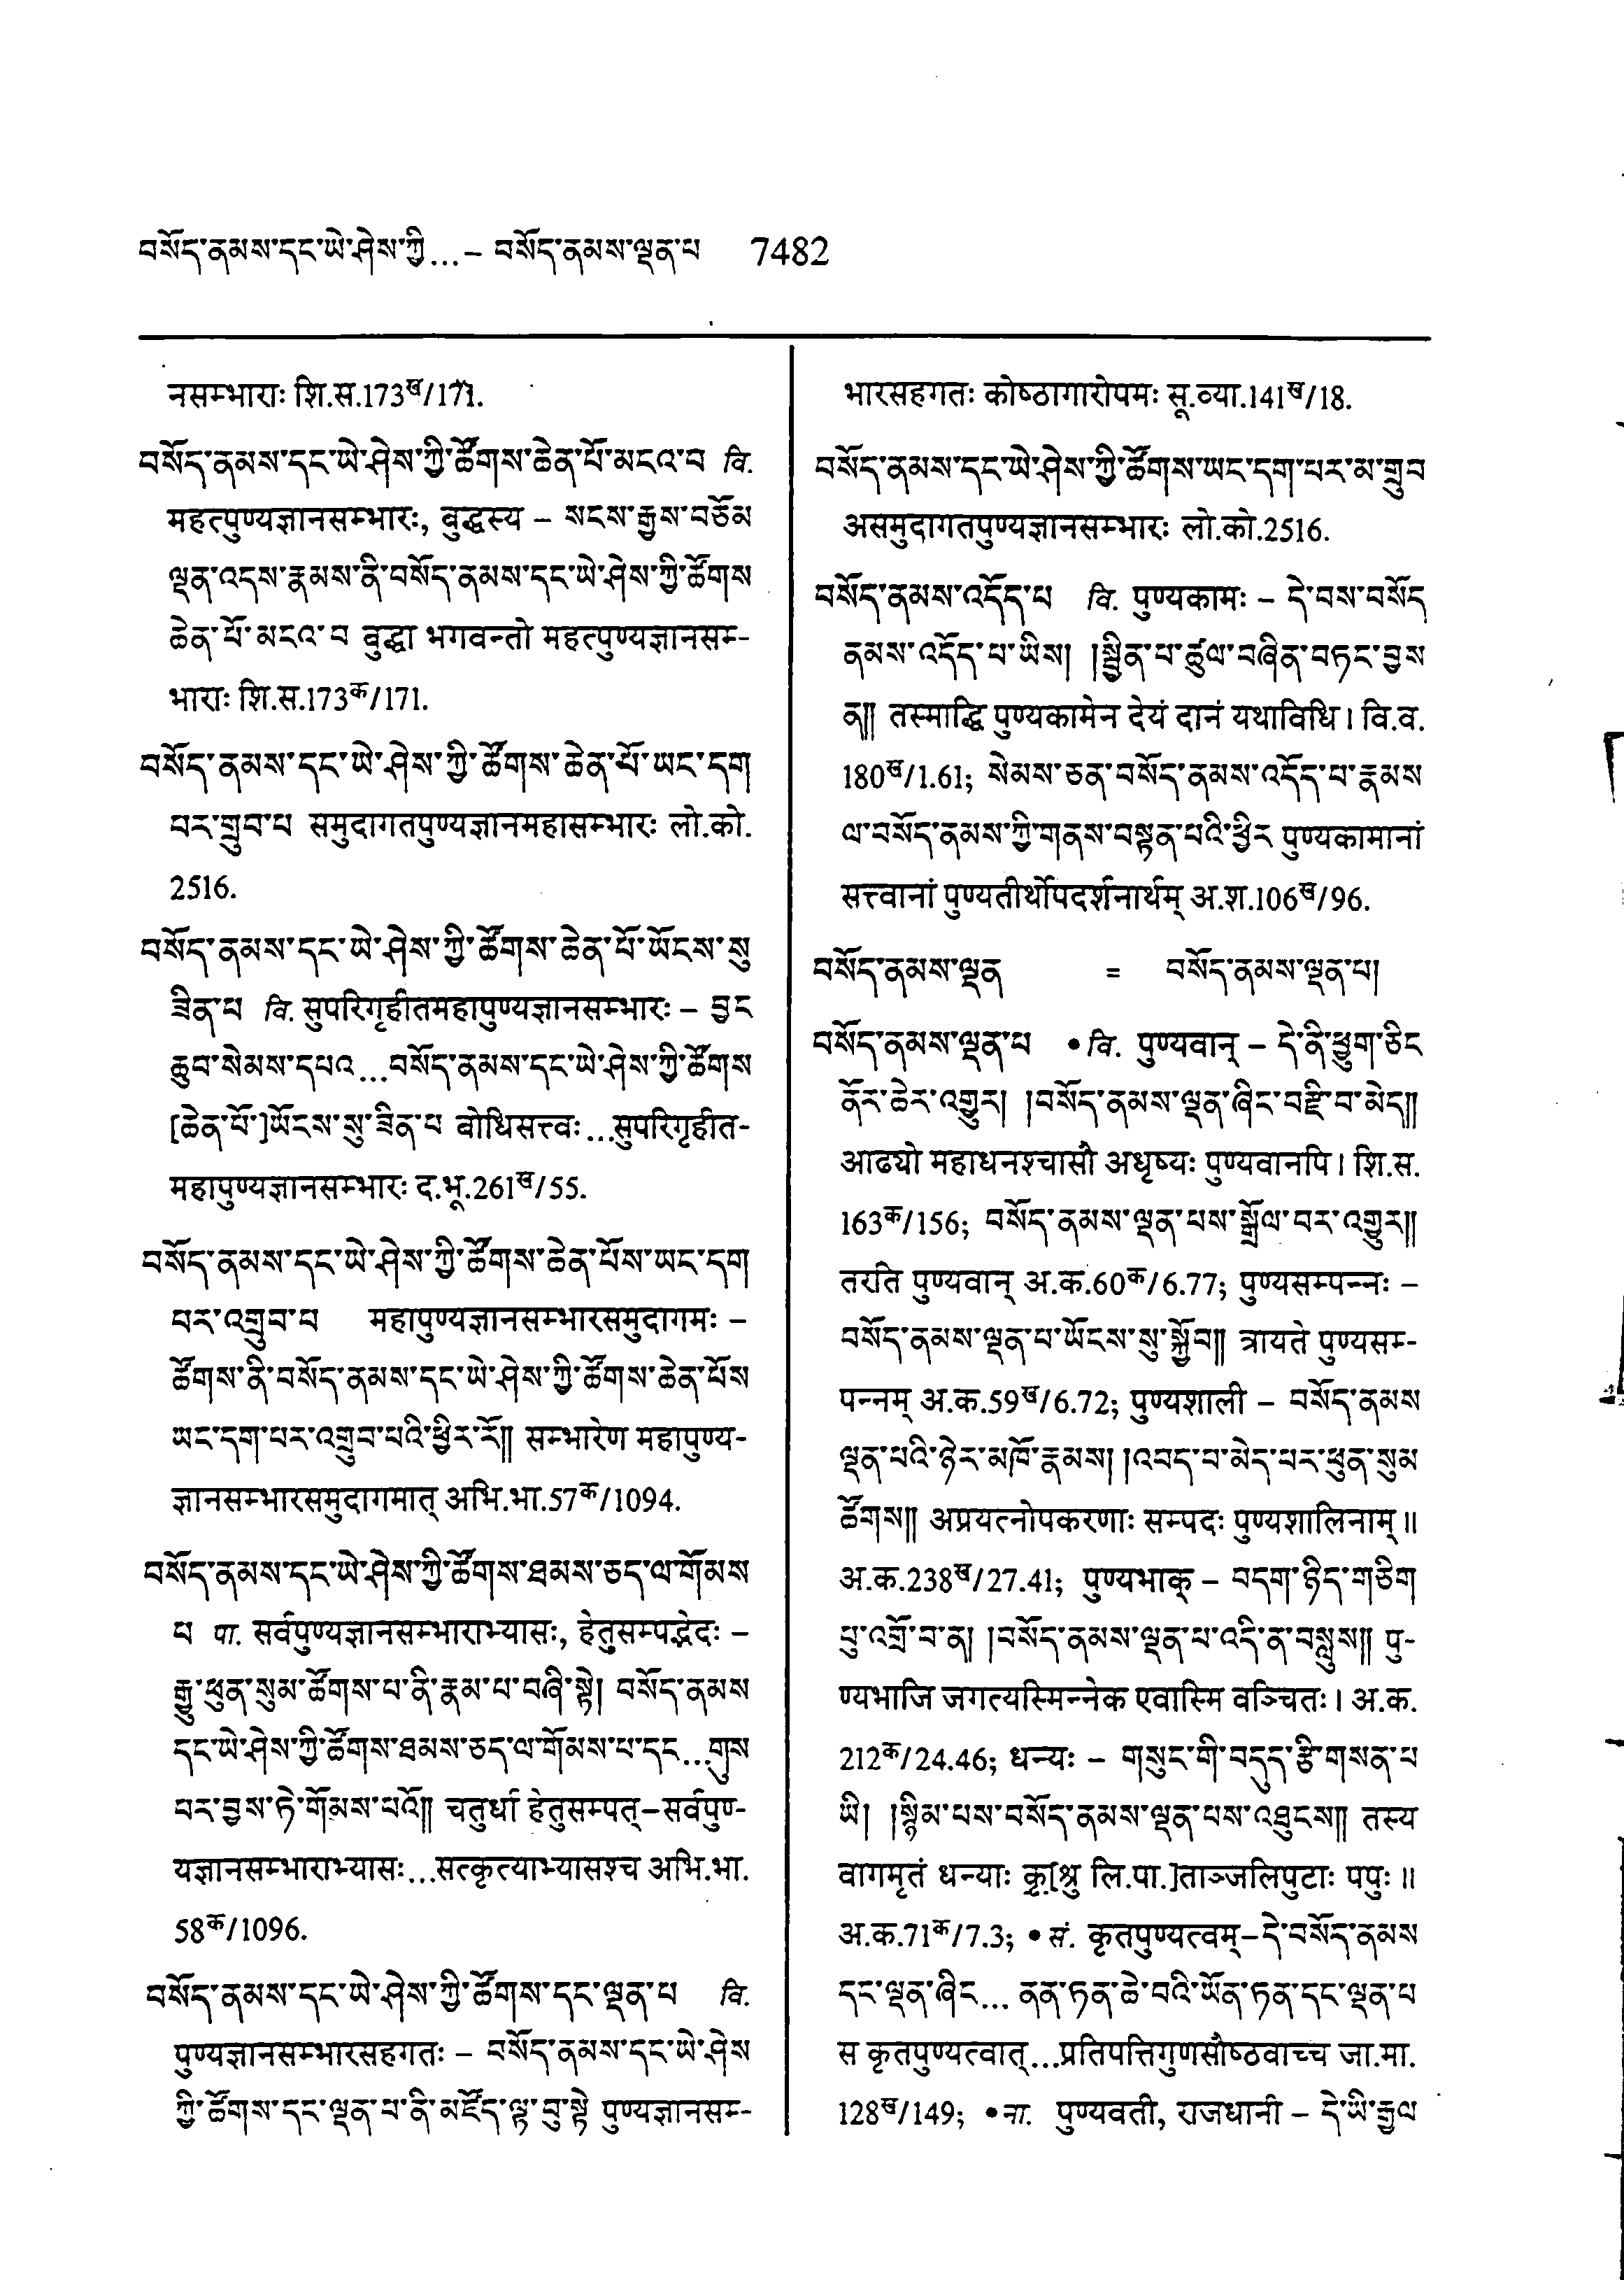 བསོད་ནམས་དང་ཡེ་ཤེས་ཀྱི...– བསོད་ནམས་ལྡན་པ 7482
नसम्भाराः शि.स.173ख/171.
བསོད་ནམས་དང་ཡེ་ཤེས་ཀྱི་ཚོགས་ཆེན་པོ་མངའ་བ वि.
महत्पुण्यज्ञानसम्भारः, बुद्धस्य – སངས་རྒྱས་བཅོམ
ལྡན་འདས་རྣམས་ནི་བསོད་ནམས་དང་ཡེ་ཤེས་ཀྱི་ཚོགས
ཆེན་པོ་མངའ་བ बुद्धा भगवन्तो महत्पुण्यज्ञानसम-
भाराः शि.स.173क/171.
བསོད་ནམས་དང་ཡེ་ཤེས་ཀྱི་ཚོགས་ཆེན་པོ་ཡང་དག
པར་གྲུབ་པ समुदागतपुण्यज्ञानमहासम्भारः लो.को.
2516.
བསོད་ནམས་དང་ཡེ་ཤེས་ཀྱི་ཚོགས་ཆེན་པོ་ཡོངས་སུ
ཟིན་པ वि. सुपरिगृहीतमहापुण्यज्ञानसम्भारः – བྱང
ཆུབ་སེམས་དཔའ...བསོད་ནམས་དང་ཡེ་ཤེས་ཀྱི་ཚོགས
[ཆེན་པོ་]ཡོངས་སུ་ཟིན་པ बोधिसत्त्वः...सुपरिगृहीत-
महापुण्यज्ञानसम्भारः द.भू.261ख/55.
བསོད་ནམས་དང་ཡེ་ཤེས་ཀྱི་ཚོགས་ཆེན་པོས་ཡང་དག
པར་འགྲུབ་པ महापुण्यज्ञानसम्भारसमुदागमः –
ཚོགས་ནི་བསོད་ནམས་དང་ཡེ་ཤེས་ཀྱི་ཚོགས་ཆེན་པོས
ཡང་དག་པར་འགྲུབ་པའི་ཕྱིར་རོ༎ सम्भारेण महापुण्य-
ज्ञानसम्भारसमुदागमात् अभि.भा.57क/1094.
བསོད་ནམས་དང་ཡེ་ཤེས་ཀྱི་ཚོགས་ཐམས་ཅད་ལ་གོམས
པ पा. सर्वपुण्यज्ञानसम्भाराभ्यासः, हेतुसम्पद्भेदः –
རྒྱུ་ཕུན་སུམ་ཚོགས་པ་ནི་རྣམ་པ་བཞི་སྟེ། བསོད་ནམས
དང་ཡེ་ཤེས་ཀྱི་ཚོགས་ཐམས་ཅད་ལ་གོམས་པ་དང...གུས
པར་བྱས་ཏེ་གོམས་པའོ༎ चतुर्धा हेतुसम्पत्–सर्वपुण-
यज्ञानसम्भाराभ्यासः...सत्कृत्याभ्यासश्च अभि.भा.
58क/1096.
བསོད་ནམས་དང་ཡེ་ཤེས་ཀྱི་ཚོགས་དང་ལྡན་པ वि.
पुण्यज्ञानसम्भारसहगतः – བསོད་ནམས་དང་ཡེ་ཤེས
ཀྱི་ཚོགས་དང་ལྡན་པ་ནི་མཛོད་ལྟ་བུ་སྟེ पुण्यज्ञानसम-
भारसहगतः कोष्ठागारोपमः सू.व्या.141ख/18.
བསོད་ནམས་དང་ཡེ་ཤེས་ཀྱི་ཚོགས་ཡང་དག་པར་མ་གྲུབ
असमुदागतपुण्यज्ञानसम्भारः लो.को.2516.
བསོད་ནམས་འདོད་པ वि. पुण्यकामः – དེ་བས་བསོད
ནམས་འདོད་པ་ཡིས། །སྦྱིན་པ་ཚུལ་བཞིན་བཏང་བྱས
ན༎ तस्माद्धि पुण्यकामेन देयं दानं यथाविधि। वि.व.
180ख/1.61; སེམས་ཅན་བསོད་ནམས་འདོད་པ་རྣམས
ལ་བསོད་ནམས་ཀྱི་གནས་བསྟན་པའི་ཕྱིར पुण्यकामानां
सत्त्वानां पुण्यतीर्थोपदर्शनार्थम् अ.श.106ख/96.
བསོད་ནམས་ལྡན = བསོད་ནམས་ལྡན་པ།
བསོད་ནམས་ལྡན་པ •वि. पुण्यवान् – དེ་ནི་ཕྱུག་ཅིང
ནོར་ཆེར་འགྱུར། །བསོད་ནམས་ལྡན་ཞིང་བརྫི་བ་མེད༎
आढ्यो महाधनश्चासौ अधृष्यः पुण्यवानपि। शि.स.
163क/156; བསོད་ནམས་ལྡན་པས་སྒྲོལ་བར་འགྱུར༎
तरति पुण्यवान् अ.क.60क/6.77; पुण्यसम्पन्नः –
བསོད་ནམས་ལྡན་པ་ཡོངས་སུ་སྐྱོབ༎ त्रायते पुण्यसम-
पन्नम् अ.क.59ख/6.72; पुण्यशाली – བསོད་ནམས
ལྡན་པའི་ཉེར་མཁོ་རྣམས། །འབད་བ་མེད་པར་ཕུན་སུམ
ཚོགས༎ अप्रयत्नोपकरणाः सम्पदः पुण्यशालिनाम्॥
अ.क.238ख/27.41; पुण्यभाक् – བདག་ཉིད་གཅིག
པུ་འགྲོ་བ་ན། །བསོད་ནམས་ལྡན་པ་འདི་ན་བསླུས༎ पु-
ण्यभाजि जगत्यस्मिन्नेक एवास्मि वञ्चितः। अ.क.
212क/24.46; धन्यः – གསུང་གི་བདུད་རྩི་གསན་པ
ཡི། །སྙིམ་པས་བསོད་ནམས་ལྡན་པས་འཐུངས༎ तस्य
वागमृतं धन्याः कृ[श्रु लि.पा.]ताञ्जलिपुटाः पपुः॥
अ.क.71क/7.3; •सं. कृतपुण्यत्वम्–དེ་བསོད་ནམས
དང་ལྡན་ཞིང... ནན་ཏན་ཆེ་བའི་ཡོན་ཏན་དང་ལྡན་པ
स कृतपुण्यत्वात्...प्रतिपत्तिगुणसौष्ठवाच्च जा.मा.
128ख/149; •ना. पुण्यवती, राजधानी – དེ་ཡི་རྒྱལ